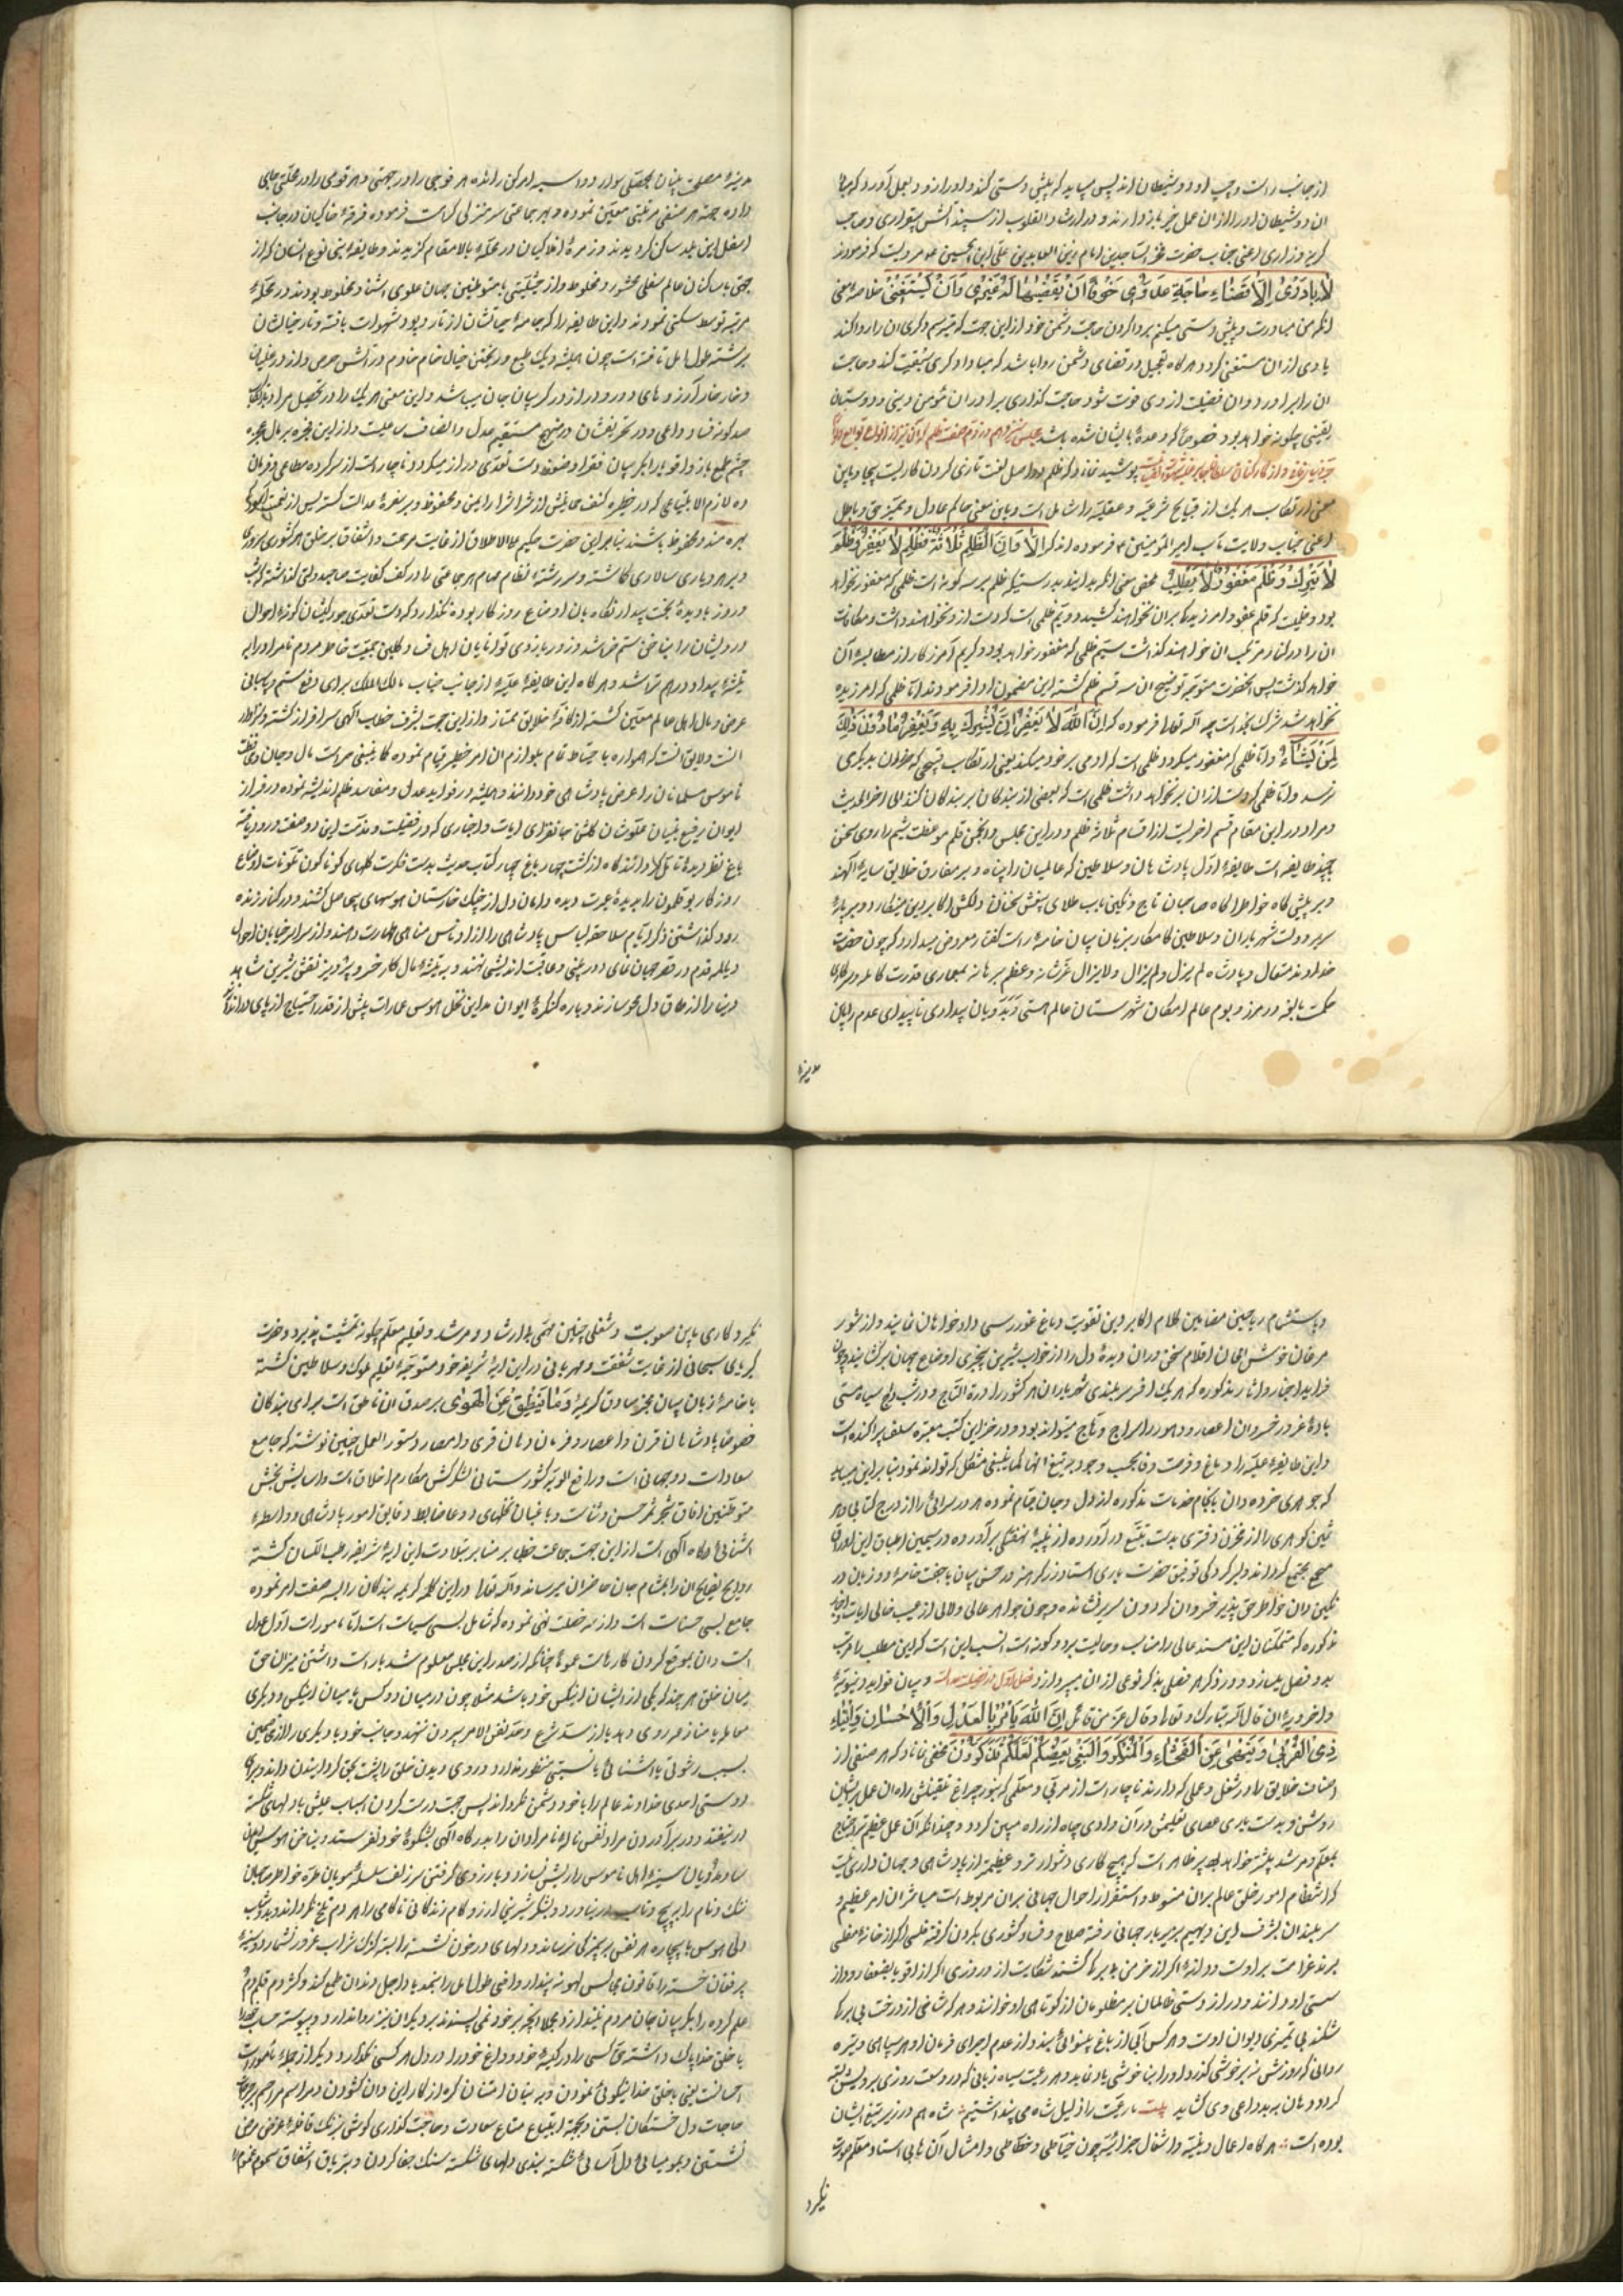 از جانب راست و چپ او دو شیطان اند پس میباید که پیش دستی کند و او را زود بعمل آورد که مبادا
ان دو شیطان او را از ان عمل خیر باز دارند و در ارشاد القلوب از سپند آتش بیقراری و صاحب
گریه و زاری اعنی جناب حضرت فخر الساجدین امام زین العابدین علی ابن الحسین ع مرویست که فرمودند
خلاصه معنی
انکه من مبادرت و پیش دستی میکنم بروا کردن حاجت دشمن خود از این جهت که میترسم دیگری ان را روا کند
یا وی از ان مستغنی گردد هرگاه تعجیل در قضای دشمن روا باشد که مبادا دیگری سبقت کند و حاجت
ان را براورد و ان فضیلت از وی فوت شود حاجت گذاری برادران مؤمن دینی و دوستان
یقینی چگونه خواهد بود خصوصاً که وعده بایشان شده باشد مجلس
پوشیده نماند که ظلم در اصل لغت تازی کردن کاریست بیجا و باین
معنی ارتکاب هر یک از قبایح شرعیه و عقلیه را شامل است و باین معنی حاکم عادل و ممیز حق و باطل
اعنی جناب ولایت مآب امیر المؤمنین ع فرموده اند که اَلا وَاِنَّ الظُّلمَ ثَلاثَةٌ فَظُلمٌ لا یُغفَرُ وَ ظُلمٌ
لا یُترَکُ وَ ظُلمٌ مَغفُورٌ لا یُطلَبُ محصل معنی انکه بدانید بدرستیکه ظلم بر سه گونه است ظلمی که مغفور نخواهد
بود و ظلمیست که قلم عفو و امرزیدگی بران نخواهند کشید و دویم ظلمی است که دست از و نخواهند داشت و مکافات
ان را در کنار مرتکب ان خواهند گذاشت سیم ظلمی که مغفور خواهد بود و کریم آمرزکار از مطالبه آن
خواهد گذشت پس انحضرت متوجه توضیح ان سه قسم ظلم گشته این مضمون ادا فرمودند اما ظلمی که امرزیده
نخواهد شد شرک بخداست چه اله تعالی فرموده که اِنَّ اللّهَ لا یَغفِرُ اَن یُشرَکَ بِهِ وَ یَغفِرُ ما دُونَ ذلِکَ
لِمَن یَشاءُ و اما ظلمی که مغفور میگردد ظلمی است که ادمی بر خود میکند یعنی ارتکاب قبیحی که ضرر ان بدیگری
نرسد و اما ظلمی که دست از ان بر نخواهد داشت ظلمی است که بعضی از بندگان بر بندگان کنند الی اخر الحدیث
و مراد در این مقام قسم اخر است از اقسام ثلاثه ظلم و در این مجلس و انجمن قلم موعظت شیم را روی سخن
بچند طایفه است طایفه اول پادشاهان و سلاطین که عالمیان را پناه و بر مفارق خلایق سایه الهند
و بر پیش گاه خواطر اگاه صاحبان تاج و نگین باب طلای بینش سخنان دلکش اکابر دین مینکارد و بر پایه
سریر دولت شهریاران و سلاطین کامکار بزبان بیان خامه راست گفتار معروض میدارد که چون حضرت
خداوند متعال و پادشاه لم یزل و لم یزال و لا یزال عز شانه و عظم برهانه بمعماری قدرت کامله و سرکاری
حکمت بالغه در مرز و بوم عالم امکان شهرستان عالم هستی و بیابان پیداری ناپیدای عدم را پاک
مدینه
مدینه مصلحت بنیان بحصل سوار و دوا سبه ارکن رانده هر فوجی را در جهتی و هر قومی را در محلی جای
داده جهة هر صنفی مرتبتی معین نموده و بهر جماعتی سرمنزلی کرامت فرموده فرقه خاکیان در جانب
اسفل این بلد ساکن گردیدند و زمره افلاکیان در محله بالا مقام گزیدند و طایفه بنی نوع انسان که از
جهتی با ساکنان عالم سفلی محشور و مخلوط و از حیثیتی با متوطنین جهان علوی اشنا و مخلوط بودند در محله
مرتبه توسط سکنی نمودند و این طایفه را که جامه حیاتشان از تار و پود شهوات بافته و تار خیالشان
برشته طول امل تافته است چون همیشه دیک طمع در پختن خیال خام مادام در آتش حرص و از در غلیان
و خار خار آرزوهای دور و دراز در گریبان جان میباشد و این معنی هر یک را در تحصیل مراد بارتکاب
صد گونه فساد داعی و در تحریفشان از منهج مستقیم عدل و انصاف ساعیست و از این فجره بر مال عجزه
چشم طمع باز و اقویا را بگریبان فقرا و ضعفا دست تعدی دراز میگردد ناچار است از سرکرده مطاعی و فرمان
ده لازم الاتباعی که در حظیره کنف حمایتش از شر اشرار ایمن و محفوظ و بر سفره عدالت گستریش از نعمت آسودگی
بهره مند و محظوظ باشند بنابر این حضرت حکیم علی الاطلاق از غایت مرحمت و اشفاق بر خلق هر کشوری سروری
و بر هر دیاری سالاری گماشته و سررشته نظام مهام هر جماعتی را در کف کفایت صاحبدولتی گذاشته که شب
و روز با دیده بخت بیدار نگاهبان اوضاع روزگار بوده نگذارد که دست تعدی جور کیشان گونه احوال
درویشان را بناخن ستم خراشد و زور بازوی توانایان اهل فساد گلبن جمعیت خاطر مردم نامراد را به
تیشه بیداد در هم تراشد و هرگاه این طایفه علیه از جانب جناب مالک الملک برای دفع ستم و پاسبانی
عرض و مال اهل عالم معین گشته از کافه خلایق ممتاز و از این جهت بشرف خطاب الهی سرافراز گشته
انست و لایق انست که همواره باحتیاط تمام بلوازم ان امر خطیر قیام نموده کما ینبغی حراست مال و جان و
ناموس مسلمانان را عرض پادشاهی خود دانند و همیشه در فواید عدل و مفاسد ظلم اندیشه نموده در فراز
ایوان رفیع بنیان علو شان گلشن جانفزای ایات و اخباری که در فضیلت و مذمت این دو صفت ورود یافته
باغ نظر دیده تامل گردانند گاه از گشت چهار باغ چهار کتاب حدیث بدست فکرت گلهای گوناگون تلونات اوضاع
روزگار بوقلمون را بدیده عبرت دیده دامان دل از چنگ خارستان هوسهای بیحاصل کشند و در کنار زنده
رود گذشتن ذکر ایام سلا حقه لباس پادشاهی را از ادناس مناهی طهارت دهند و از سراسر خیابان احوال
دیالمه قدم در قصر جهان نمای دور بینی و عاقبت اندیشی نهند و به تیشه مال کار خسرو پرویز نقش شیرین شاهد
دنیا را از طاق دل محو سازند و پاره کنگره ایوان مداین نخل هوس عمارات بیش از قدر احتیاج از پای در اندازند
و باستشمام ریاحین مضامین کلام اکابر دین تقویت دماغ غور رسی دادخواهان نمایند و از شور
مرغان خوش الحان اقلام سخن وران دیده دل را از خواب شیرین بیخبری اوضاع جهان بر گشایند و چون
فراید اخبار و اثار مذکوره که هر یک افسر سربلندی شهریاران هر کشور را درة التاج و در شب داج سیاه مستی
باده غرور خسروان اعصار و دهور را سراج وهاج میتواند بود و در خزاین کتب معتبره سلف پراکنده است
و این طایفه علیه را دماغ و فرصت وفا بحسب وجوب بر تتبع انها کما ینبغی مشکل که تواند نمود بنابر این میباید
که جوهری خرده دان باتمام خدمات مذکوره از دل و جان قیام نموده هر در سرائی را از درج کتابی و هر
ثمین گوهری را از مخزن دفتری بدست تتبع در آورده از پنبه نهفتگی بر آورده در سیمین اطباق این اوراق
صحیح مجتمع گرداند و لیکر دکی توفیق حضرت باری استاد زرگر هنرور حسن بیان با جفت خامه دو زبان در
نگین دان خواطر حق پذیر خسروان گردون سریر نشانده و چون جواهر عالی و لالی از عیب خالی ایات و اخبار
مذکوره که متمکنان این مسند عالی را مناسب و حالیست بر دو گونه است انسب این است که این مطلب را مرتب
بدو فصل بسازد و در ذکر هر فصلی بذکر نوعی از ان بپردازد فصل اول در فضیلت عدالت و بیان فواید دنیویه
و اخرویه ان قال اله تبارک و تعالی و قال عز من قائل اِنَّ اللّهَ یَأمُرُ بِالعَدلِ وَ الاِحسانِ وَ ایتاءِ
ذِی القُربی وَ یَنهی عَنِ الفَحشاءِ وَ المُنکَرِ وَ البَغیِ یَعِظُکُم لَعَلَّکُم تَذَکَّرُونَ مخفی نماناد که هر صنفی از
اصناف خلایق را در شغل و عملی که دارند ناچار است از مربی و معلمی که بنور چراغ تلقینش راه ان عمل بر ایشان
روشن و بدست یاری عصای تعلیمش در آن وادی چاه از راه مبین گردد و چندانکه آن عمل عظیم تر احتیاج
بمعلم و مرشد بیشتر خواهد بود پر ظاهر است که هیچ کاری دشوارتر و عظیمتر از پادشاهی و جهان داری نیست
که انتظام امور خلق عالم بران منوط و استقرار احوال جهانی بران مربوط است مباشران امر عظیم و
سربلندان بشرف این دیهیم بزیر بار جهانی رفته صلاح و فساد کشوری بگردن گرفته فلسی اگر از خانه مفلسی
برند غرامت بر اوست و دانه اگر از خرمن
سستی او دانند و دراز دستی ظالمان بر مظلومان از کوتاهی او خوانند و هر که شاخی از درخت بی برگی
شکند بی تمیزی دیوان اوست و هر کس آبی از باغ بینوائی بندد از عدم اجرای فرمان او هر سیاهی و تیره
روانی که روزش نه بر خوشی گذرد او را بنا خوشی یاد نماید و هر رعیت سیاه زبانی که در وسعت روزی برویش بسته
گردد دهان ببد داعی وی گشاید بیت ما رعیت را ذلیل شاه می پنداشتیم شاه هم در زیر تیغ ایشان
بوده است هرگاه اعمال دینیه و اشغال جزائیه چون خیاطی و خطاطی و امثال آن تا بی استاد و معلم صورت
نگیرد
نگیرد کاری باین صعوبت و شغلی چنین مهمی بی ارشاد و مرشد و تعلیم معلم چگونه تمشیت پذیرد و حضرت
کریای سبحانی از غایت شفقت و مهربانی در این ایه شریفه خود متوجه تعلیم ملوک و سلاطین گشته
با خامه زبان بیان مخبر صادق کریمه وَ ما یَنطِقُ عَنِ الهَوی بر صدق ان ناطق است برای بندگان
خصوصاً پادشاهان قرون و اعصار و فرمان دهان قری و امصار دستور العمل چنین نوشته که جامع
سعادات دو جهانی است و رافع الویه کشورستانی لشکرکش مکارم اخلاق است و اسایش بخش
متوطنین افاق شجر ثمر حسن و ثناست و باغبان نخلهای دعا ضابط دقایق امور پادشاهی و واسطه
اشنائی درگاه الهی است از این جهت جماعت خطبا بر منابر بتلاوت این ایه شریفه رطب اللسان گشته
روایح نصایح ان را بمشام جان حاضران میرسانند و اله تعالی در این کلمه کریمه بندگان را بسه صفت امر نموده
جامع بسی حسنات است و از سه خصلت نهی نموده که شامل بسی سیئات است اما مامورات اول عدل
است و ان بموقع کردن کارهاست عموماً چنانکه از صدر این مجلس معلوم شد یا راست داشتن میزان حق
میان خلق هر چند که یکی از ایشان انکس خود باشد مثلا چون در میان دو کس یا میان انکس و دیگری
معامله یا منازعه روی دهد پا از سد شرع و حد نفس الامر بیرون ننهند و جانب خود یا دیگری را از متخاصمین
بسبب رشوتی یا اشنائی یا نسبتی منظور ندارد و روی دیدن خلق را پشت بحق گردانیدن داند و برای
دوستی احدی خداوند عالم را با خود دشمن نگرداند پس جهت درست کردن اسباب عیش با دلهای شکسته
در نیفتد و در بر آوردن مراد نفس ناله نامرادان را بدرگاه الهی بشکوه خود نفرستد و بناخن هوس
سینه اهل ناموس را ریش نسازد و بارزوی گرفتن سر زلف سلسله مویان طره خواطر صاحبان
ننک و نام را بپیچ و تاب در نیاورد و بشکر شیرین ارزو کام زندگانی ناکامی را هر دم تلخ نگرداند و بدوشاب
دلی هوس با بیچاره هر نفس
برفغان خسته را قانون مجلس لهو نه پندارد و افعی طول امل را ببخمد یا داجل دندان طمع کند و کژدم
علم کرده را بگریبان جان مردم نیندازد و بالجمله انچه بر خود نمی پسندد بر دیگران نیز روا ندارد و پیوسته حساب خود را
با خلق خدا پاک داشته حق کسی را در کیسه خود و داغ خود را در دل هر کسی نگذارد و دیگر از جمله مامورات
احسانست یعنی با خلق خدا نیکوئی نمودن و به بنان امتنان گره از کار این و ان گشودن و مراسم مراحم
حاجات دل خستگان بستن و بجهة ابتیاع متاع سعادت و حاجت گذاری گوش بزنک قافله عرض
نشستن و بمومیائی دل آسائی شکسته بندی دلهای شکسته سنک جفا کردن و بتریاق اشفاق سموم